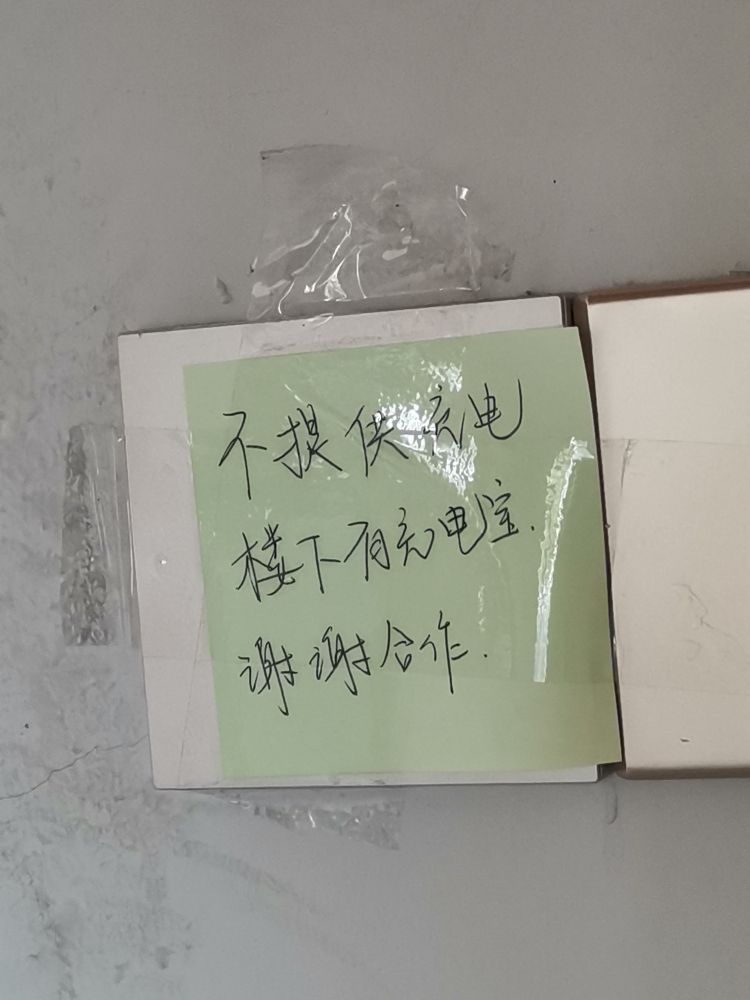 不提供充电
楼下有充电宝.
谢谢合作.